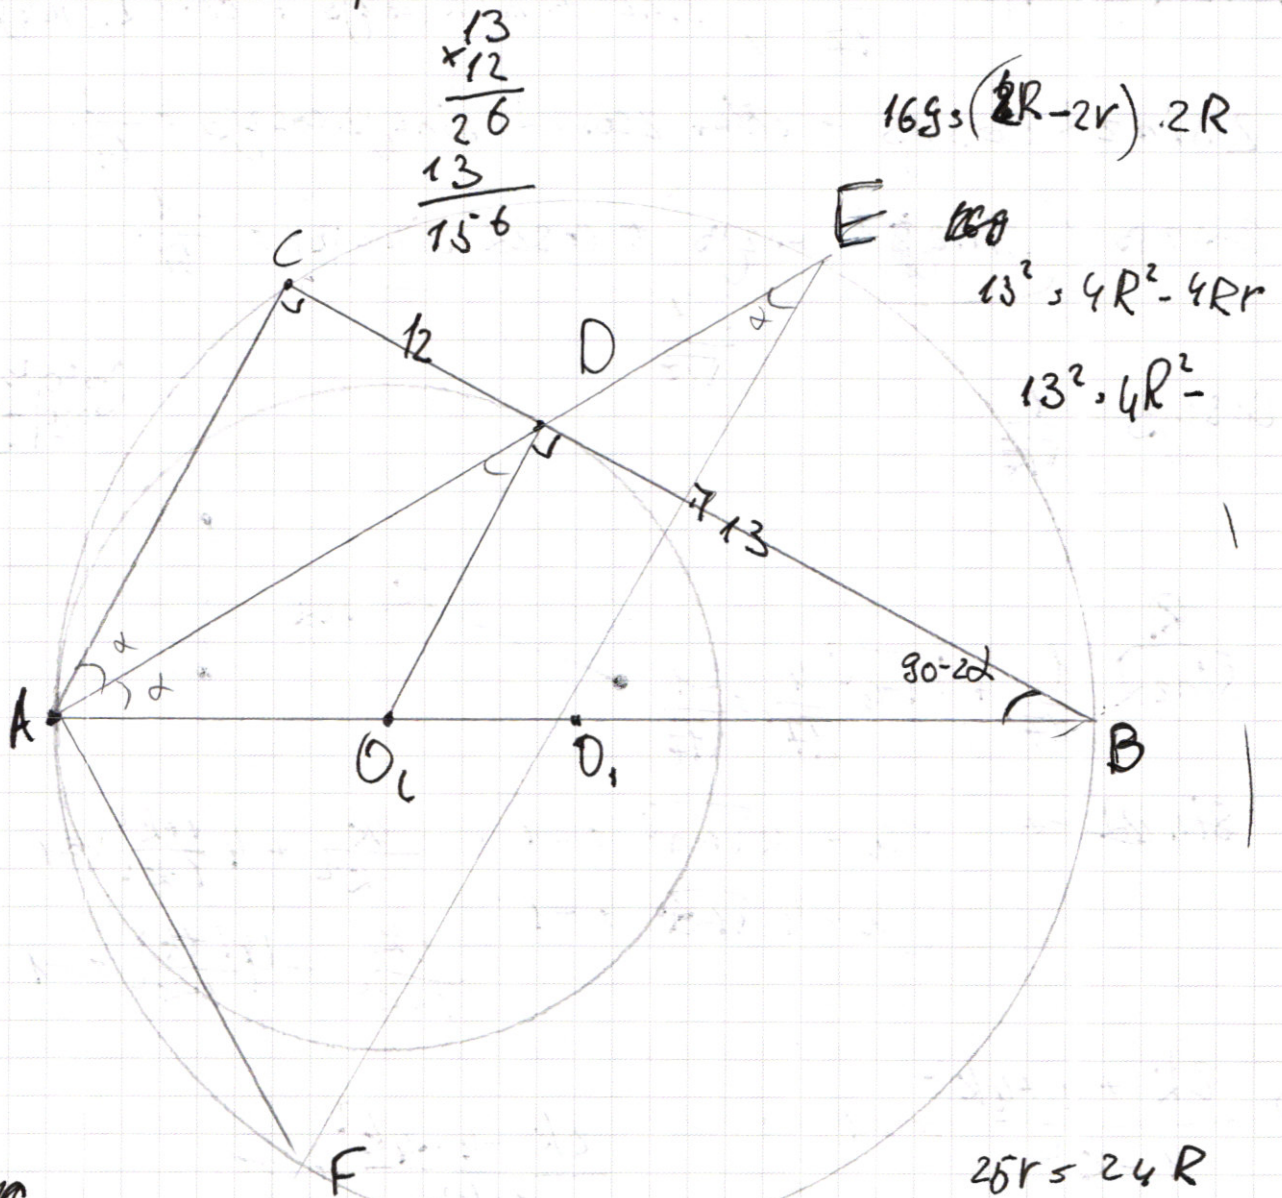 13
×12
26
13
156
169 = (2R-2r) . 2R
E
13² = 4R² - 4Rr
13² = 4R² -
C
12
D
α
13
α
α
90-2α
A
O₁
B
F
25r = 24R